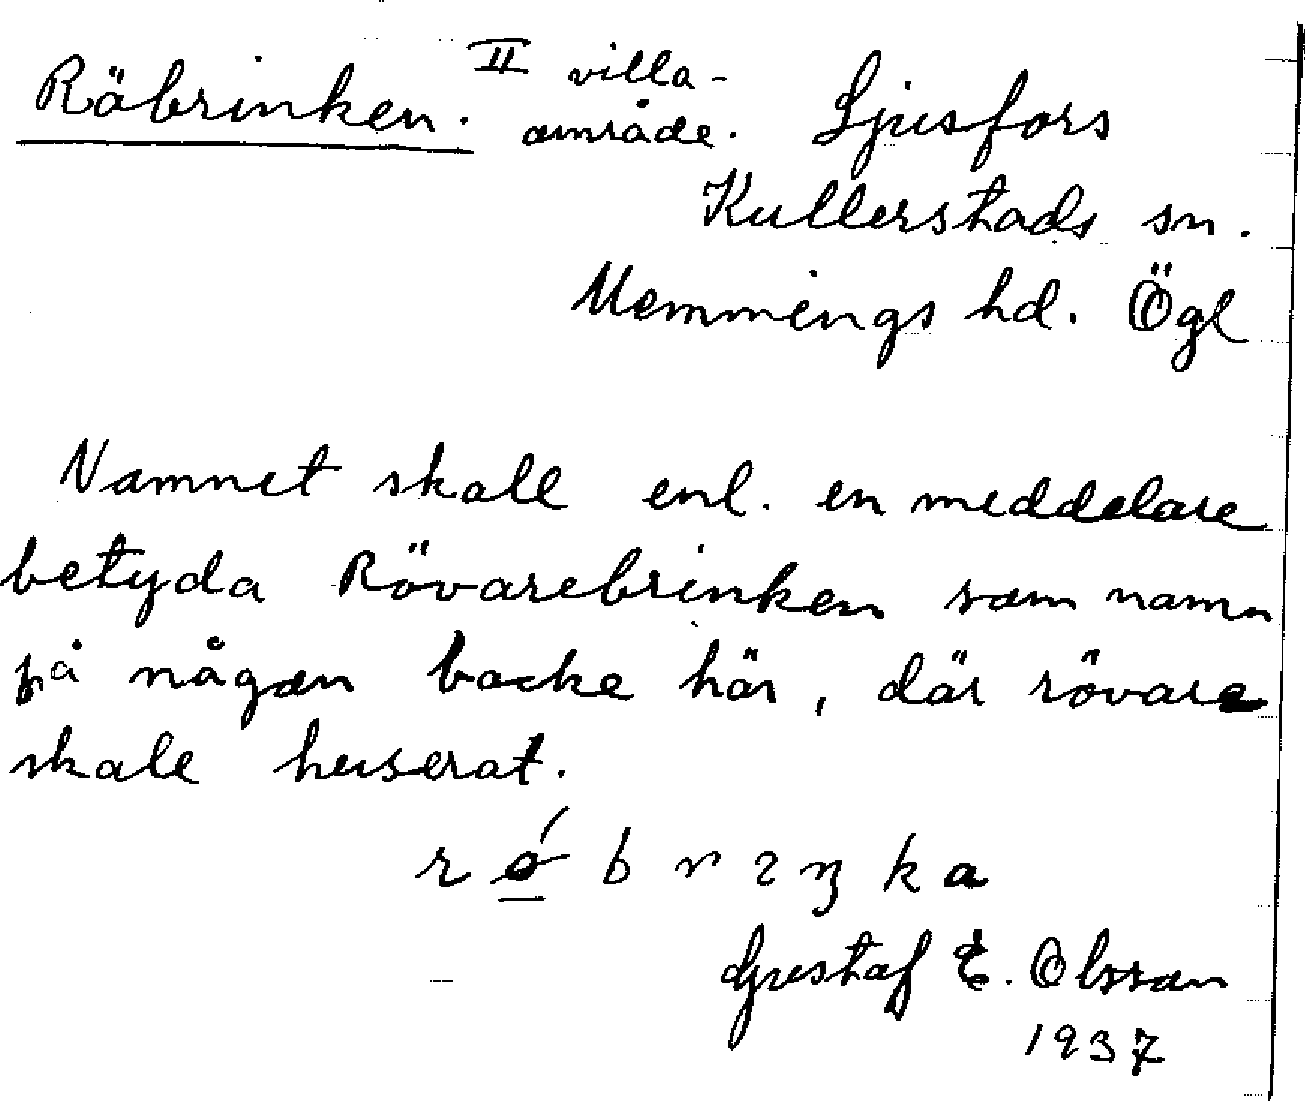 Räbrinken. II villa-
område. Ljusfors
Kullerstads sn.
Memmings hd. Ögl
Namnet skall enl. en meddelare
betyda Rövarebrinken som namn
på någon backe här, där rövare
skale huserat.
Gustaf E. Olsson
1937